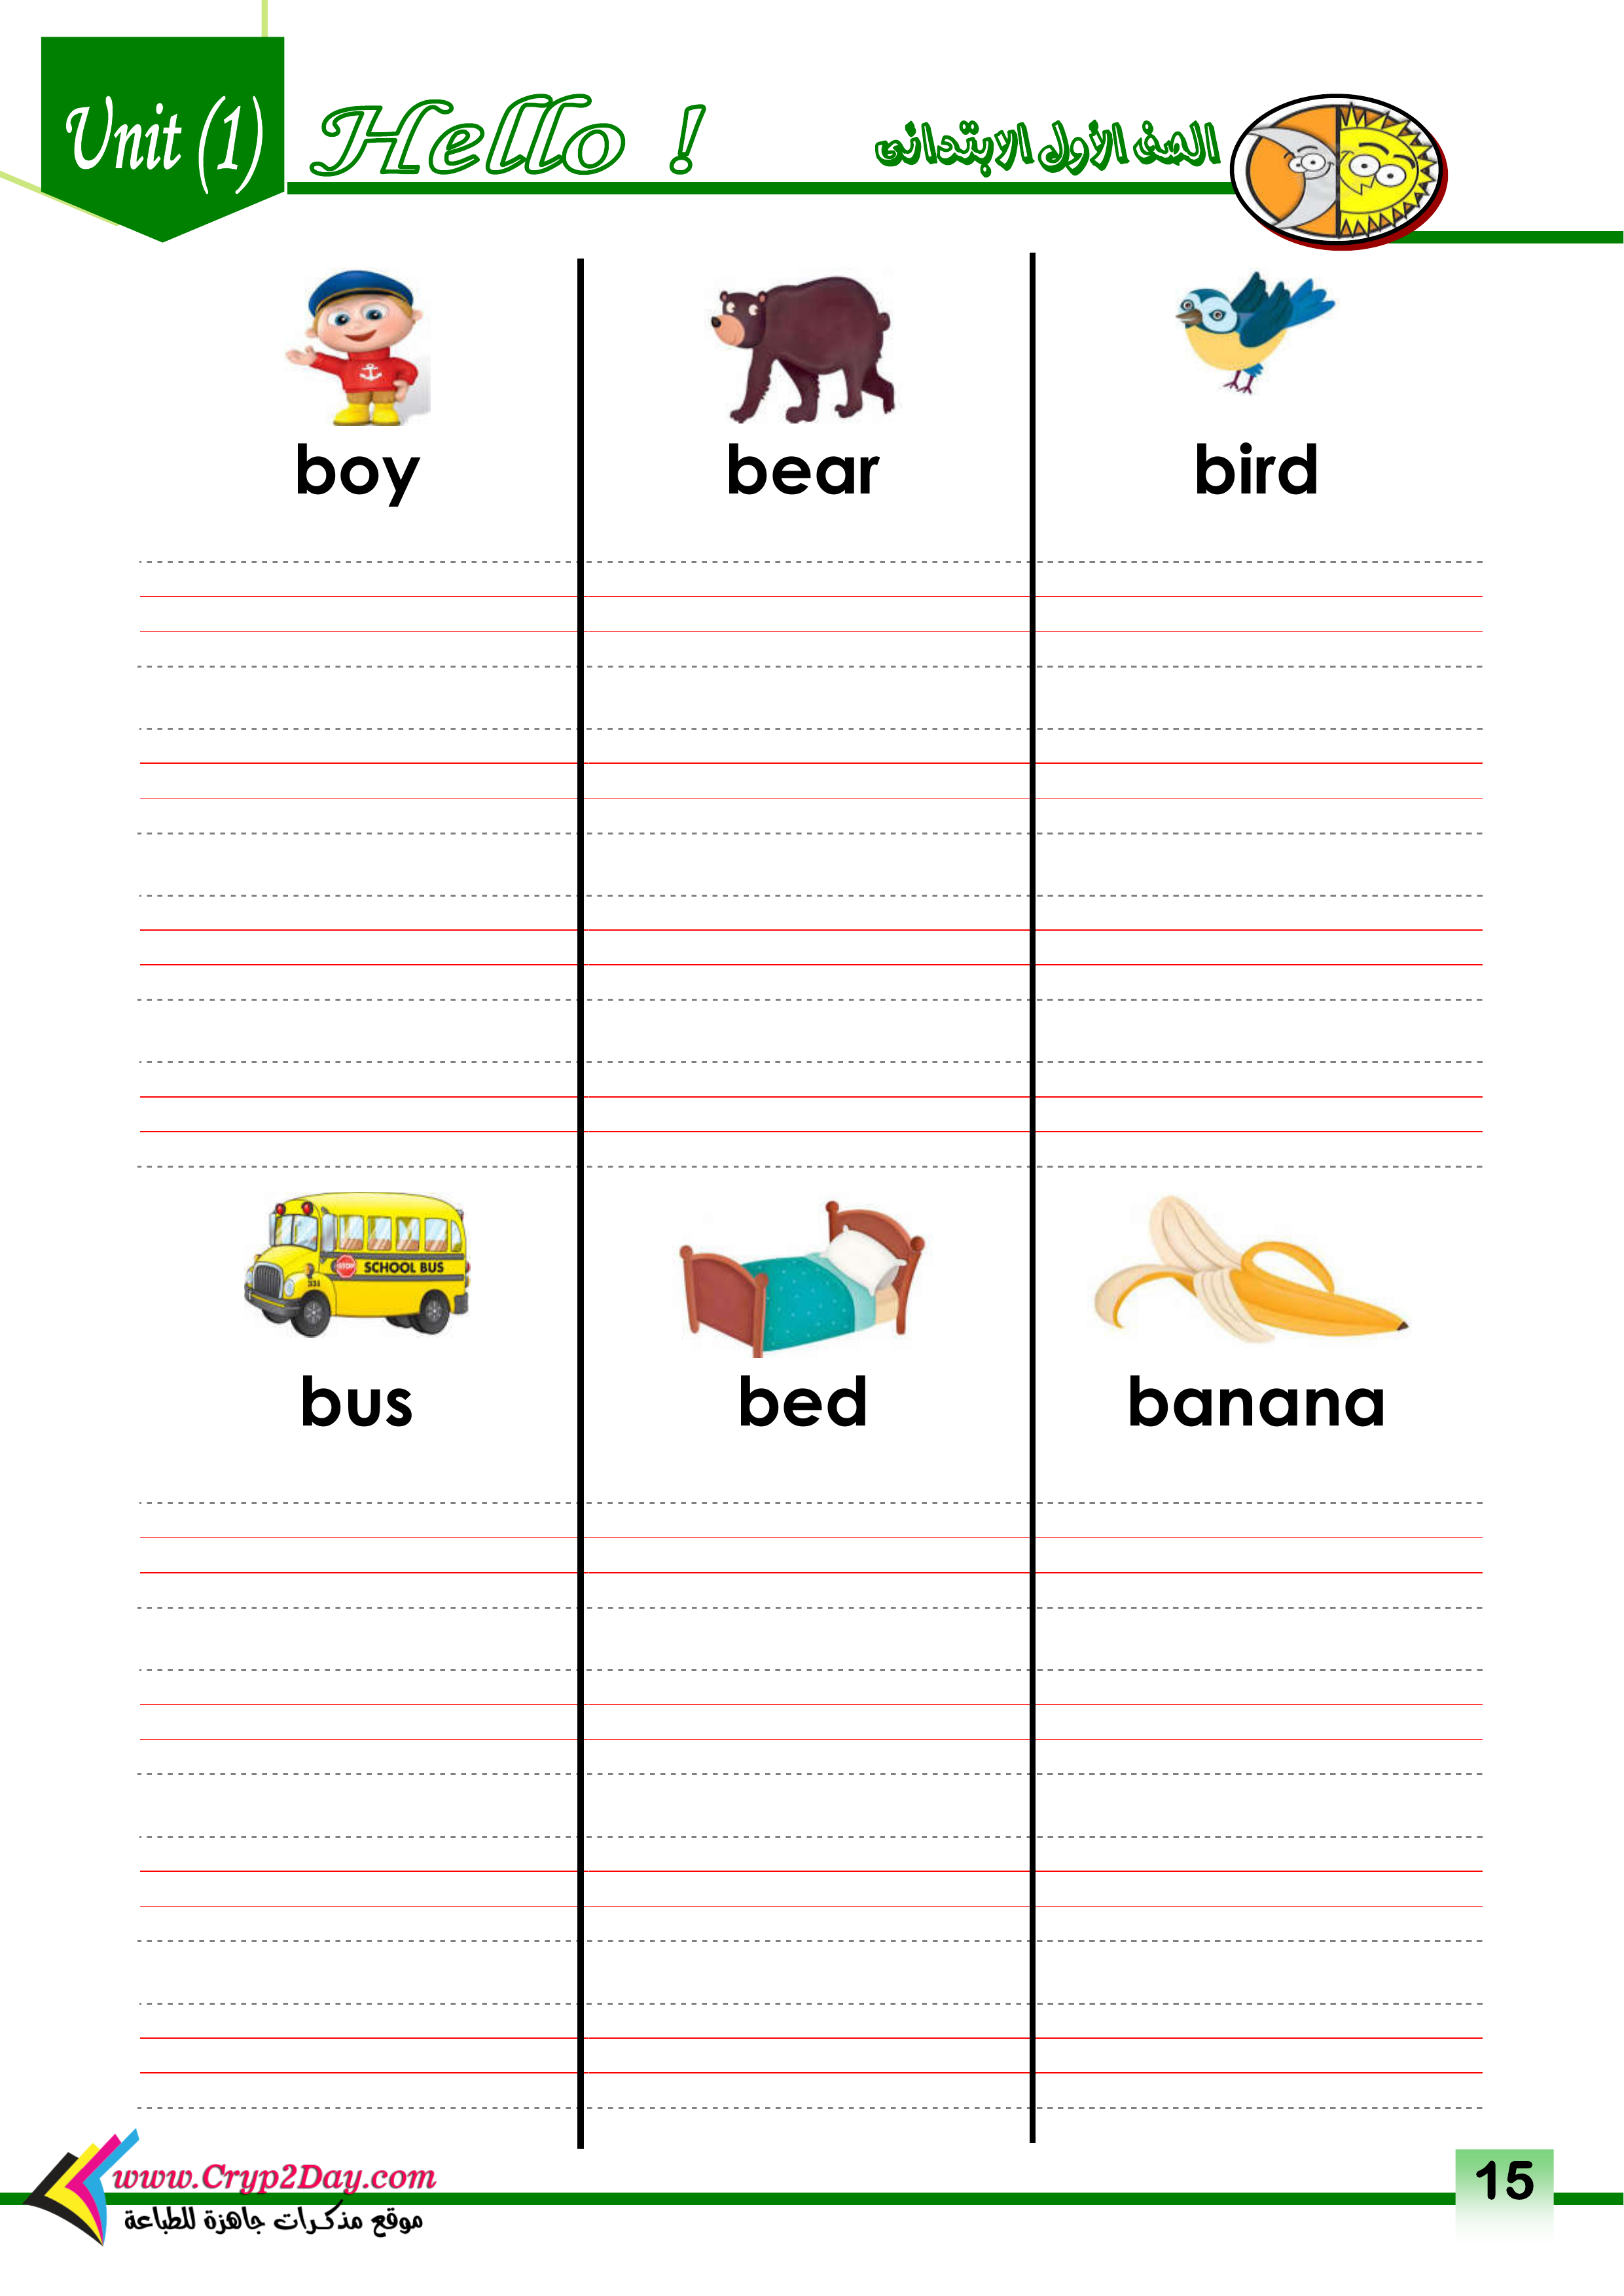 Unit (1)
Hello !
الصف الأول الابتدائى
boy
bear
bird
STOP
SCHOOL BUS
331
bus
bed
banana
www.Cryp2Day.com
موقع مذكرات جاهزة للطباعة
15